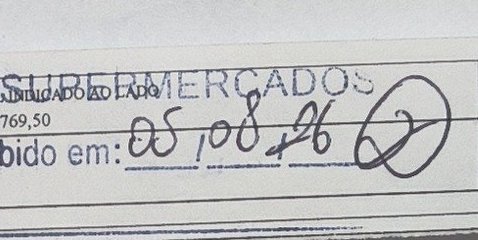 SUPERMERCADOS
INDICADO AO LADO
769,50
bido em: 05/08/26